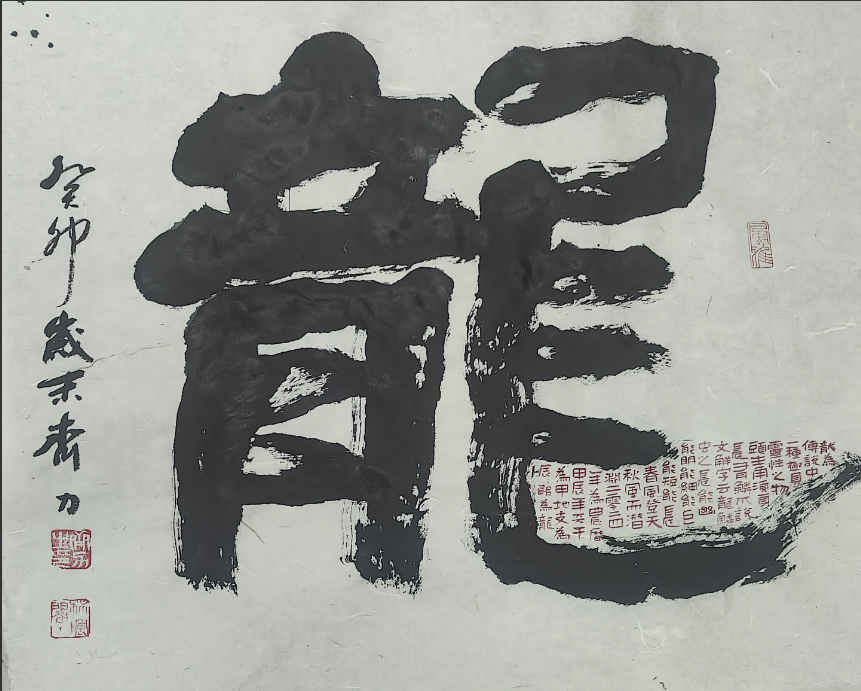 龍
龍為
傳說中
一種極具
靈性之物
頭生角須鬣
長有鱗爪說
文解字云龍鱗
蟲之長能幽
能明能細能巨
能短能長
春風登天
秋風而潛
淵二零二四
年為農曆
甲辰年天干
為甲地支為
辰為龍
癸卯歲末齊力